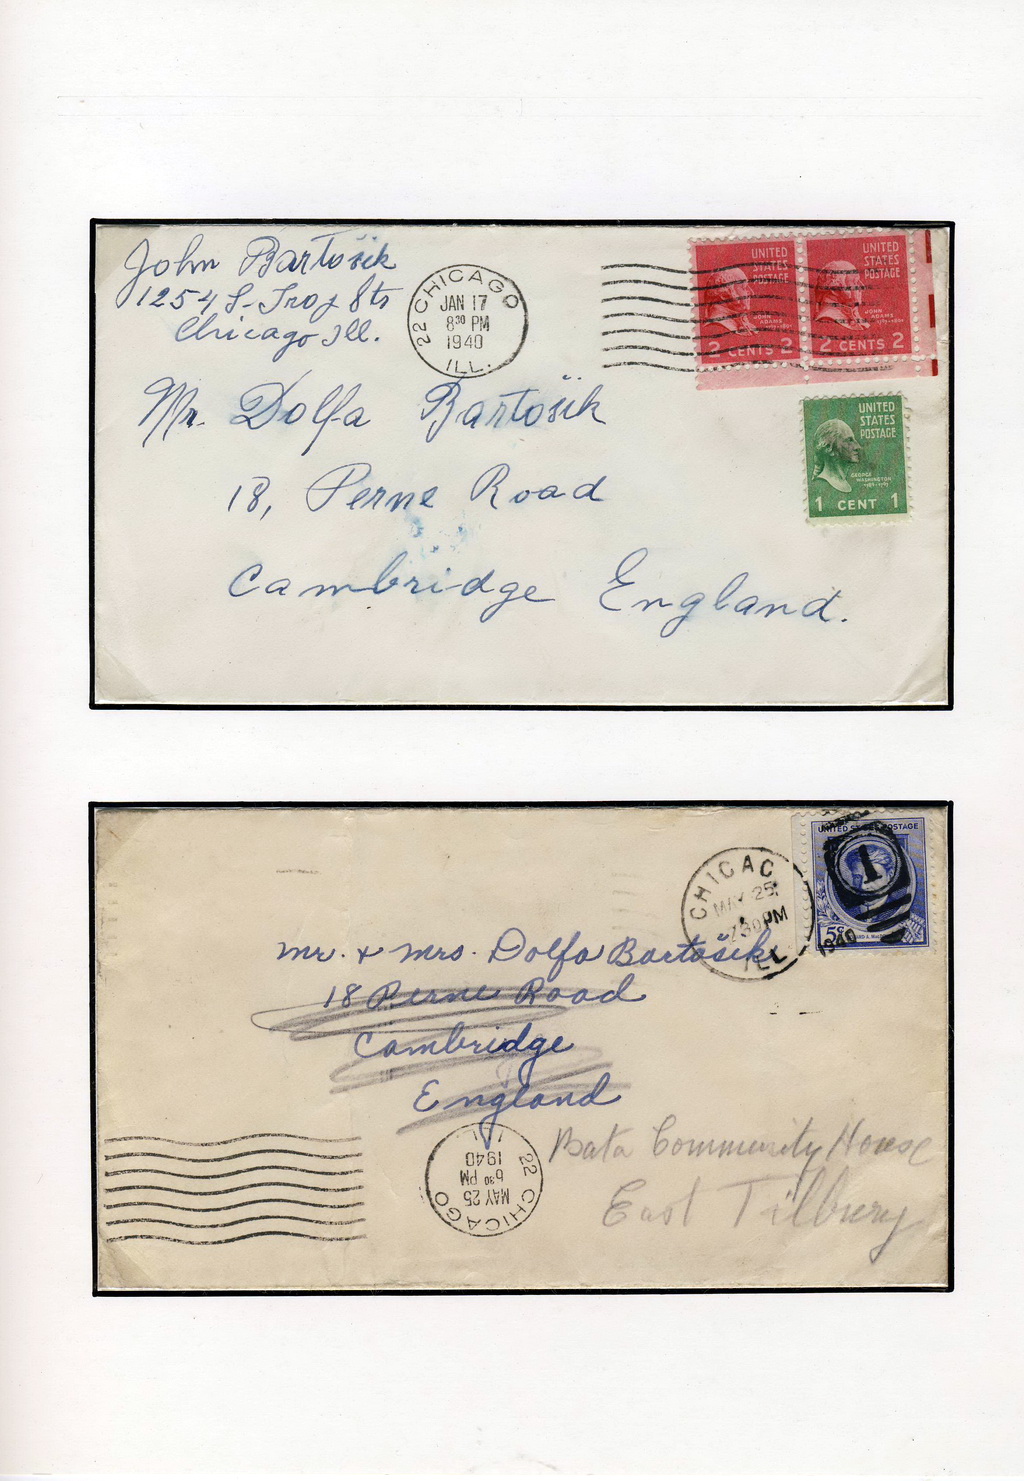 John Bartošik
1254 S-Troy Sts
Chicago Ill.
22 CHICAGO
JAN 17
8³⁰ PM
1940
ILL.
UNITED
STATES
POSTAGE
JOHN
ADAMS
2 CENTS 2
UNITED
STATES
POSTAGE
JOHN
ADAMS
2 CENTS 2
Mr. Dolfa Bartošik
18, Perne Road
Cambridge England.
UNITED
STATES
POSTAGE
GEORGE
WASHINGTON
1 CENT 1
CHICAG
MAY 25
730PM
ILL
1940
UNITED STATES POSTAGE
1
5¢
mr. & mrs. Dolfa Bartošik
18 Perne Road
Cambridge
England
22 CHICAGO
MAY 25
6³⁰ PM
1940
ILL.
Bata Community House
East Tilbury